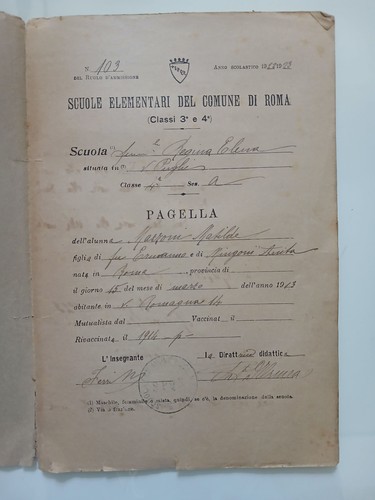 N. 103
DEL RUOLO D'ISCRIZIONE
ANNO SCOLASTICO 19
SCUOLE ELEMENTARI DEL COMUNE DI ROMA
(Classi 3ª e 4ª)
Scuola Regina Elena
situata in v. Puglie
Classe 4ª Sez. A
PAGELLA
dell'alunna Marzoni Matilde
figlia di fu Ermanno e di
nata in Roma, provincia di
il giorno 15 del mese di marzo dell'anno 1913
abitante in v. Romagna 14
Mutualista dal Vaccinata
Rivaccinata 1914
L'Insegnante La Direttrice didattica
(1) Maschile, femminile o mista, quindi, se c'è, la denominazione della scuola.
(2) Via o Piazza.